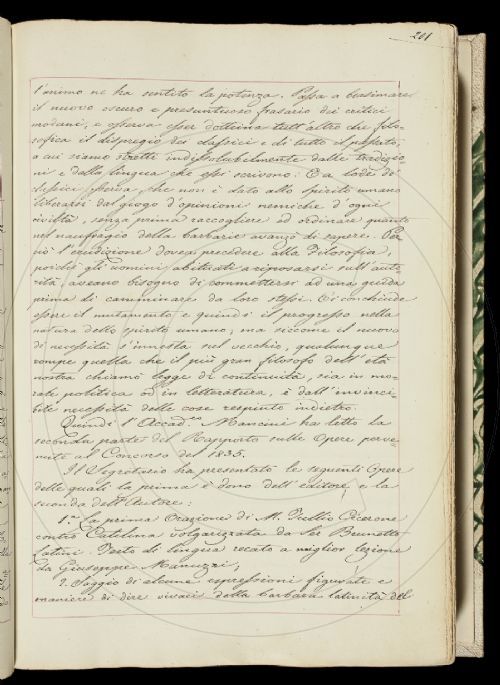 201
l'animo ne ha sentito la potenza. Passa a biasimare
il nuovo oscuro e presuntuoso frasario dei critici
moderni, e osserva esser dottrina tutt'altro che filo-
sofica il dispregio dei classici e di tutto il passato,
a cui siamo stretti indissolubilmente dalle tradizio-
ni e dalla lingua che essi scrivono: E a lode de'
classici osserva, che non è dato allo spirito umano
liberarsi dal giogo d'opinioni nemiche d'ogni
civiltà, senza prima raccogliere ed ordinare quanto
nel naufragio della barbarie avanzò di sapere. Per
ciò l'erudizione dovea precedere alla Filosofia,
poichè gli uomini abituati a riposarsi sull'auto
rità aveano bisogno di commettersi ad una guida
prima di camminare da loro stessi. E conchiude
essere il mutamento e quindi il progresso nella
natura dello spirito umano; ma siccome il nuovo
di necessità s'innesta sul vecchio, qualunque
rompe quella che il più gran filosofo dell'età
nostra chiamò legge di continuità, sia in mo-
rale politica od in letteratura, è dall'invinci-
bile necessità delle cose respinto indietro.
Quindi l'Accad.co Mancini ha letto la
seconda parte del Rapporto sulle Opere perve-
nute al Concorso del 1835.
Il Segretario ha presentato le seguenti Opere
delle quali la prima è dono dell'editore, e la
seconda dell'Autore:
1.a La prima Orazione di M. Tullio Cicerone
contro Catilina volgarizzata da Ser Brunetto
Latini. Testo di lingua recato a miglior lezione
da Giuseppe Manuzzi;
2. Saggio di alcune espressioni figurate e
maniere di dire vivaci della barbara latinità del